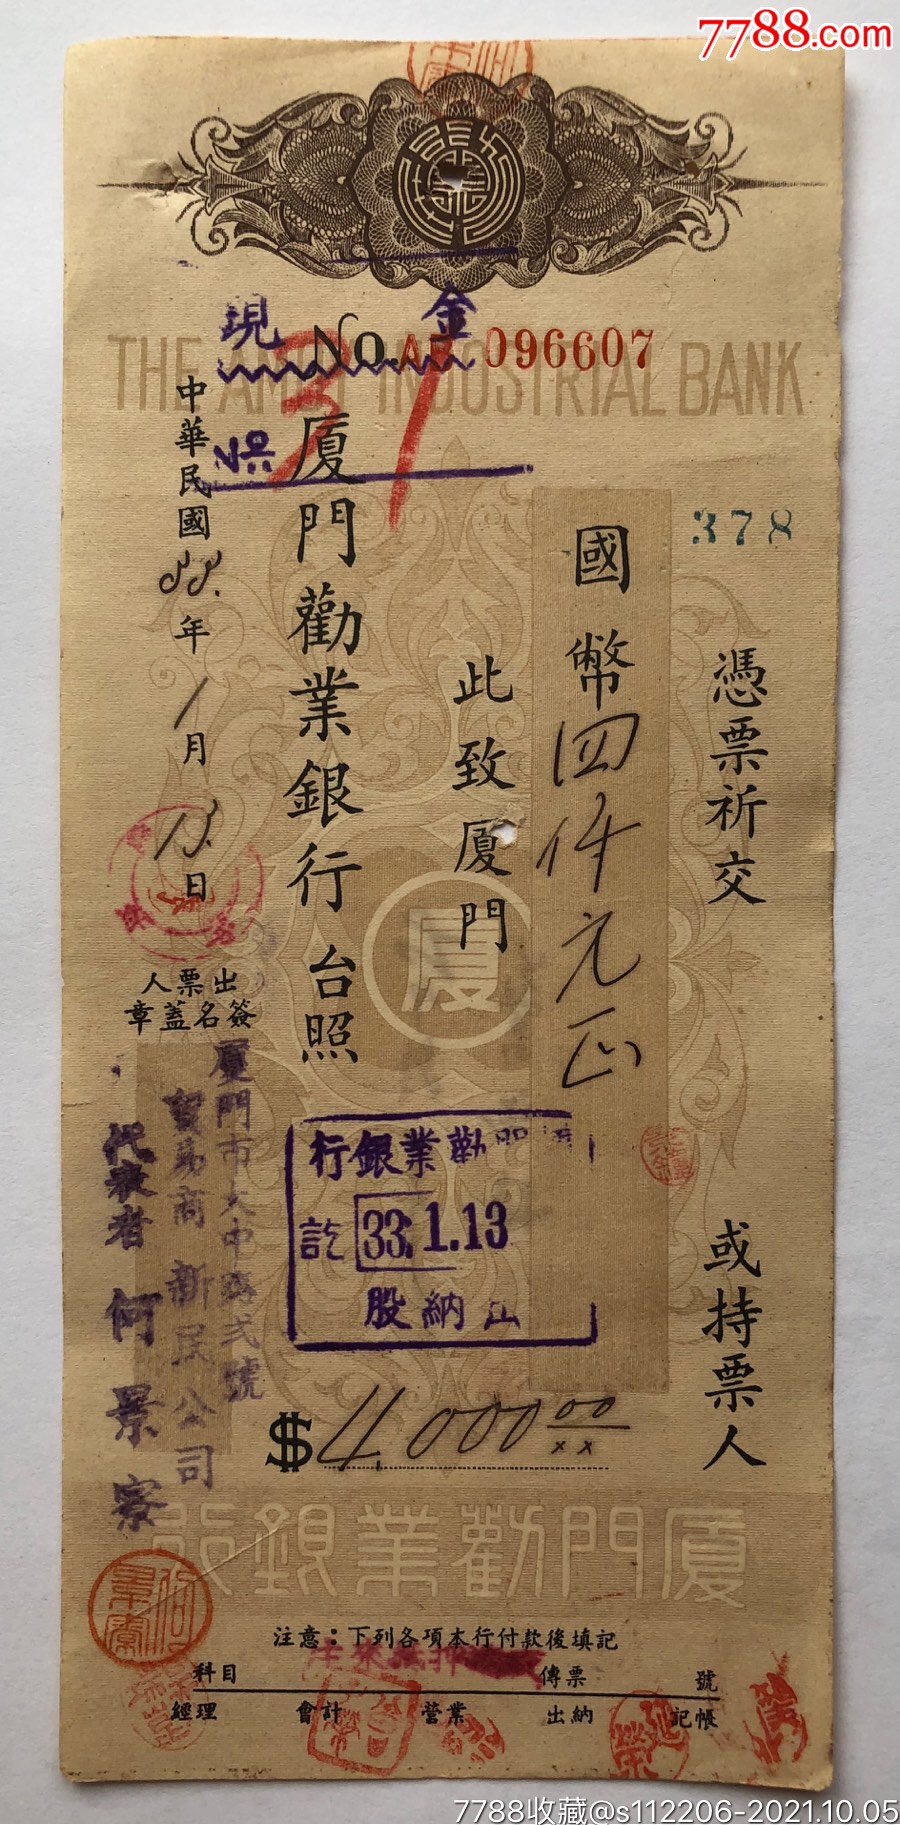 7788.com
現金
No.A 096607
THE AMOY INDUSTRIAL BANK
378
憑票祈交
或持票人
國幣四仟元正
此致厦門
厦門勸業銀行 台照
中華民國33.年1月13.日
出票人
簽名蓋章
厦門市大中路弍號
貿易商 新民公司
代表者 何景寮
勸業銀行
33.1.13
訖
出納股
$4,000 00
xx
厦門勸業銀行
厦
注意：下列各項本行付款後填記
科目 傳票 號
經理 會計 營業 出納 記帳
7788收藏@s112206-2021.10.05